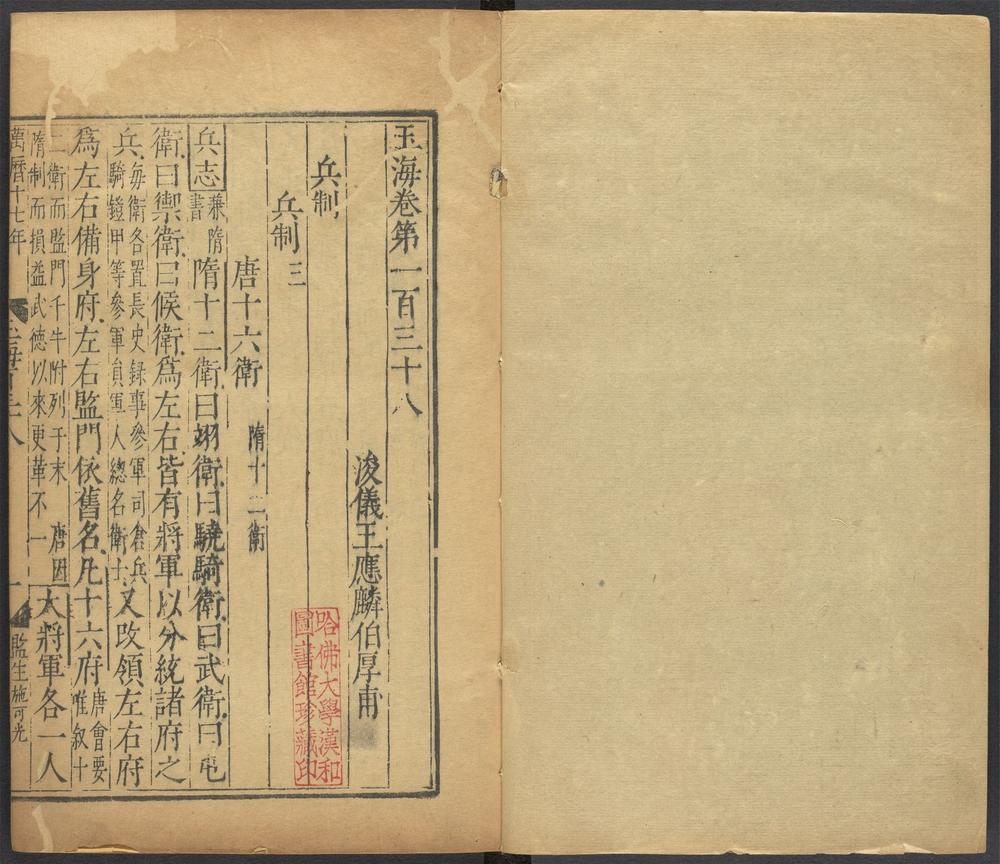 玉海卷第一百三十八
浚儀王應麟伯厚甫
兵制
兵制三
唐十六衛 隋十二衛
兵志兼隋書隋十二衛曰翊衛曰驍騎衛曰武衛曰屯
衛曰禦衛曰候衛爲左右皆有將軍以分統諸府之
兵每衛各置長史録事參軍司倉兵騎鎧甲等參軍員軍人總名衛士又改領左右府
爲左右備身府左右監門依舊名凡十六府唐會要唯叙十
二衛而監門千牛附列于末唐因隋制而損益武德以來更革不一大將軍各一人
萬曆十七年
玉海百三八
一
監生施可光
哈佛大學漢和
圖書館珍藏印